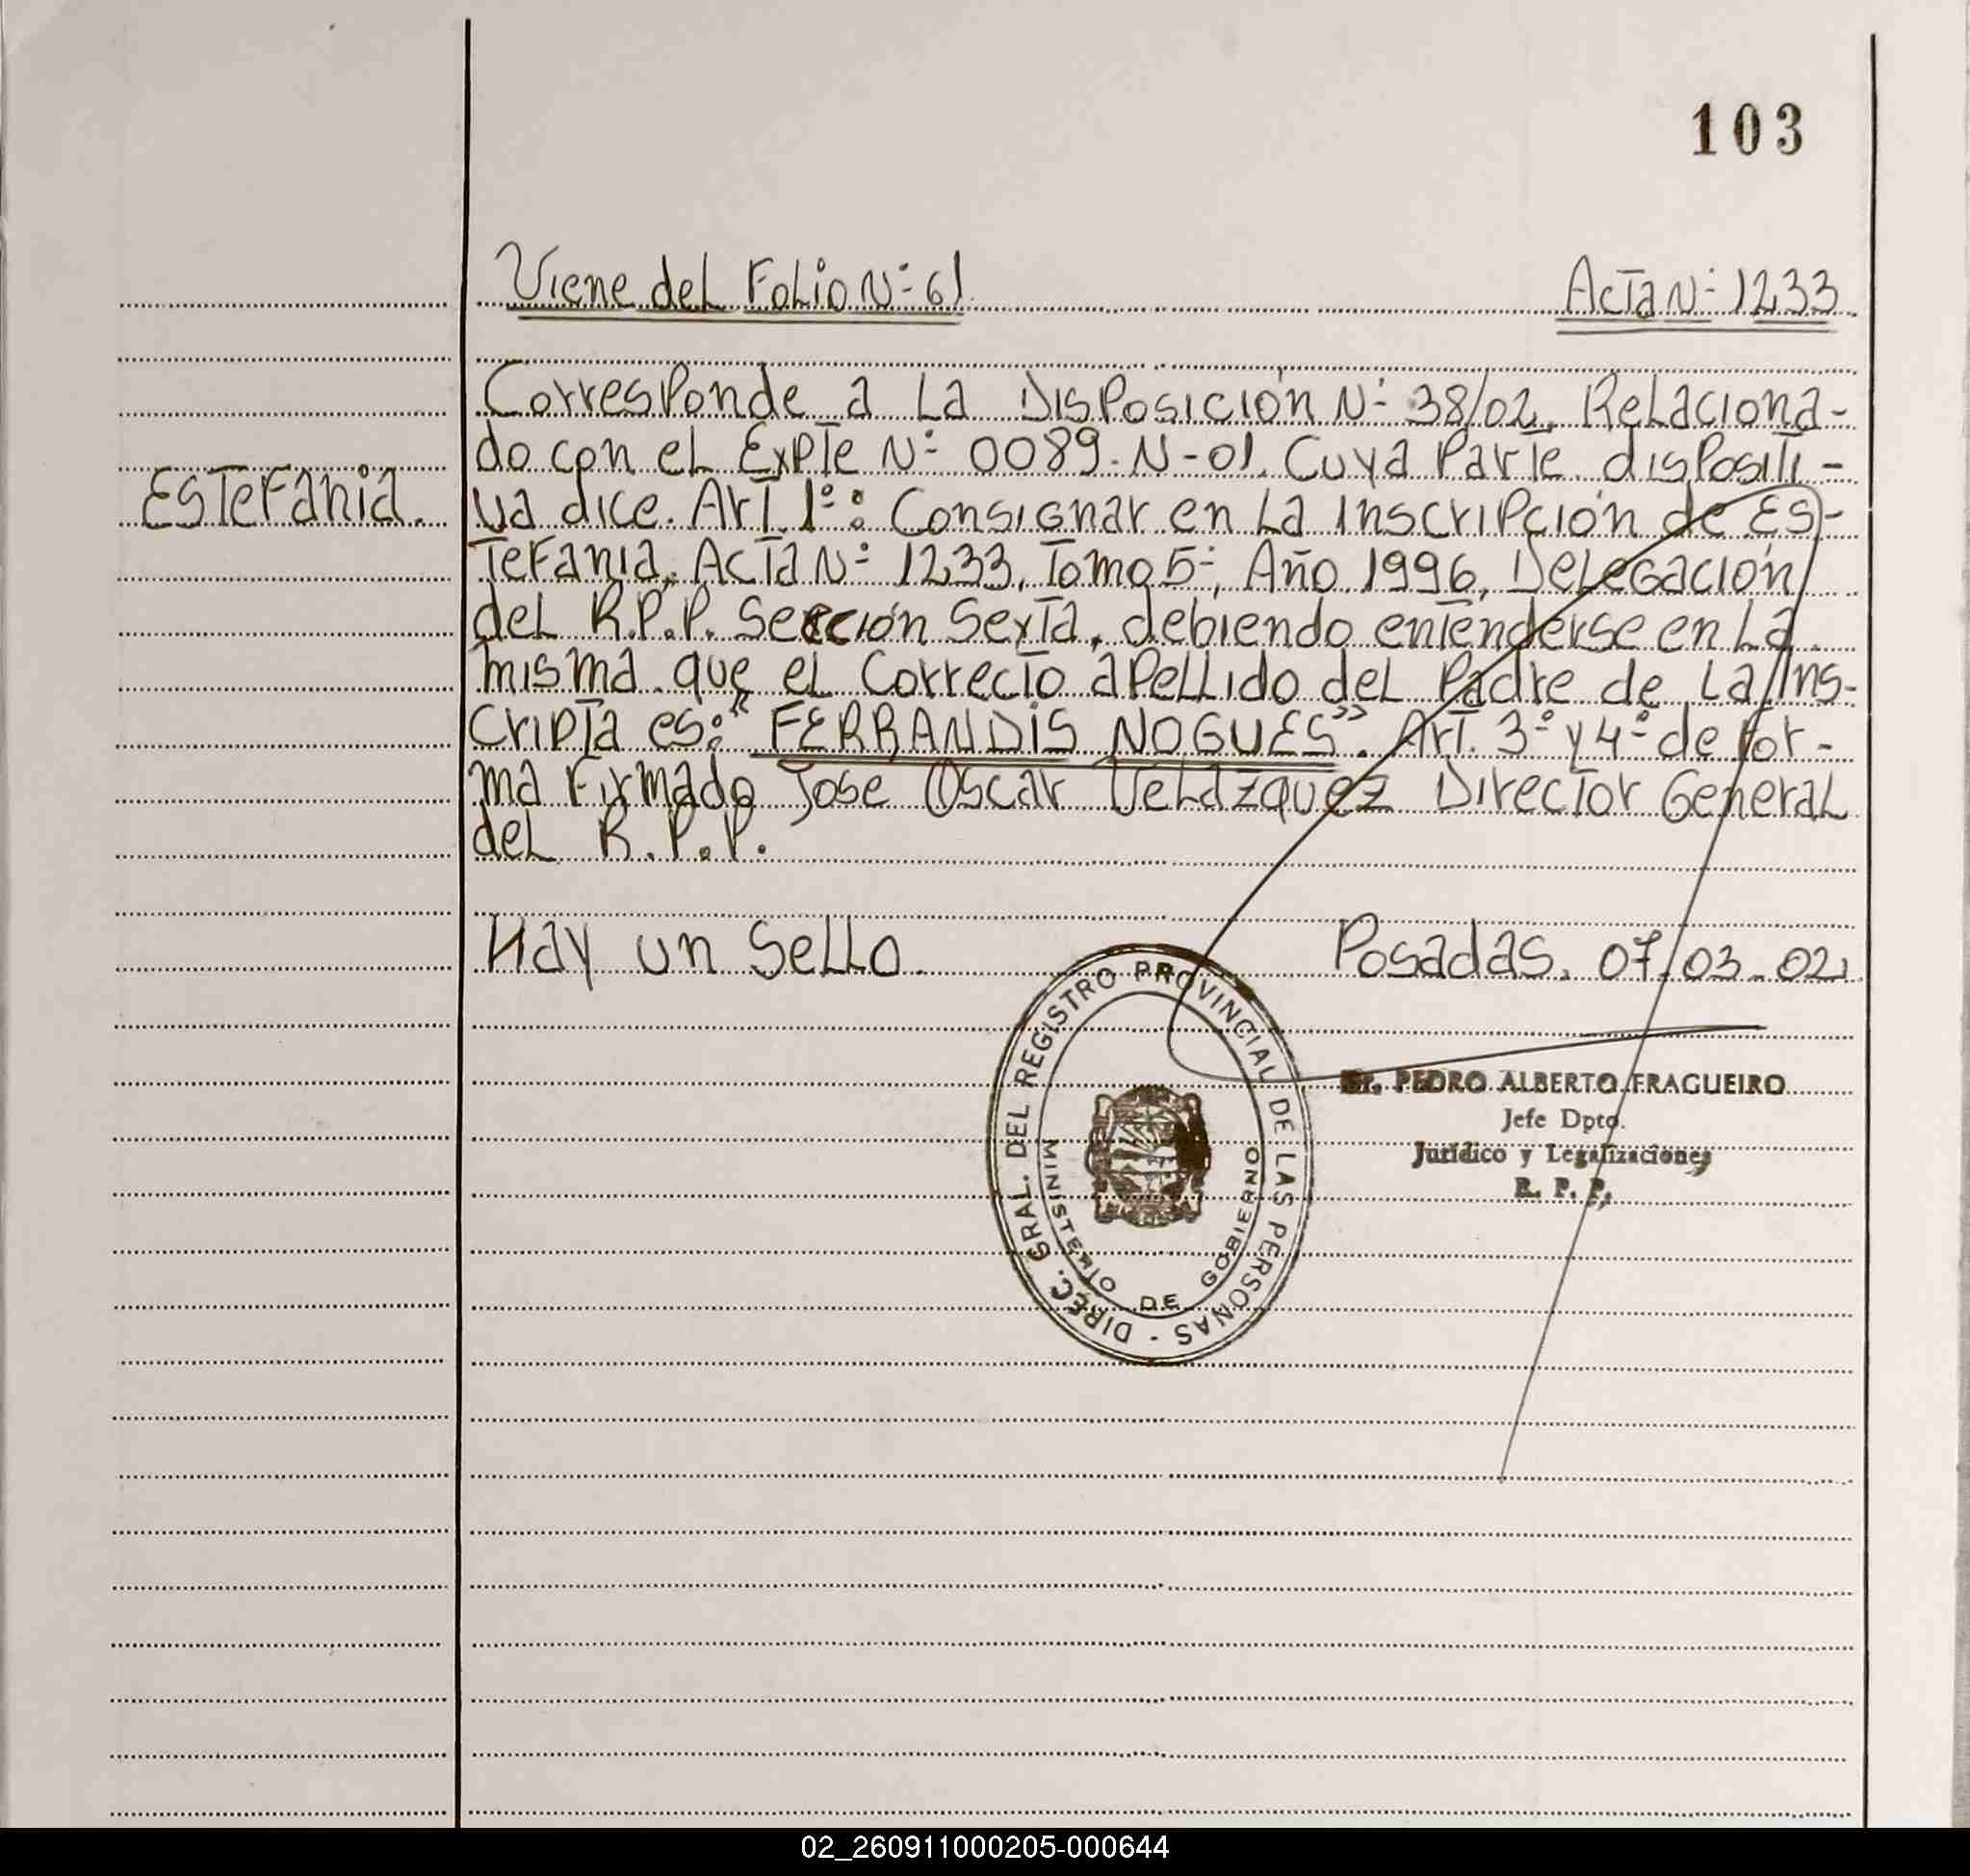 103
Viene del Folio N: 61. Acta N: 1233.
Corresponde a La Disposición N: 38/02. Relaciona-
do con el Expte N: 0089-N-01. Cuya Parte dispositi-
Estefania. va dice. Art. 1º: Consignar en La Inscripción de Es-
tefania, Acta N: 1233, Tomo 5:, Año 1996, Delegación
del R.P.P. Sección Sexta, debiendo entenderse en La
misma que el Correcto apellido del Padre de La Ins-
cripta es: "FERRANDIS NOGUES". Art. 3º y 4º de For-
ma Firmado Jose Oscar Velazquez Director General
del R.P.P.
Hay un Sello. Posadas, 07-03-02.
DIREC. GRAL. DEL REGISTRO PROVINCIAL DE LAS PERSONAS -
MINISTERIO DE GOBIERNO
PEDRO ALBERTO FRAGUEIRO
Jefe Dpto.
Jurídico y Legalizaciones
R. P. P.
02_260911000205-000644